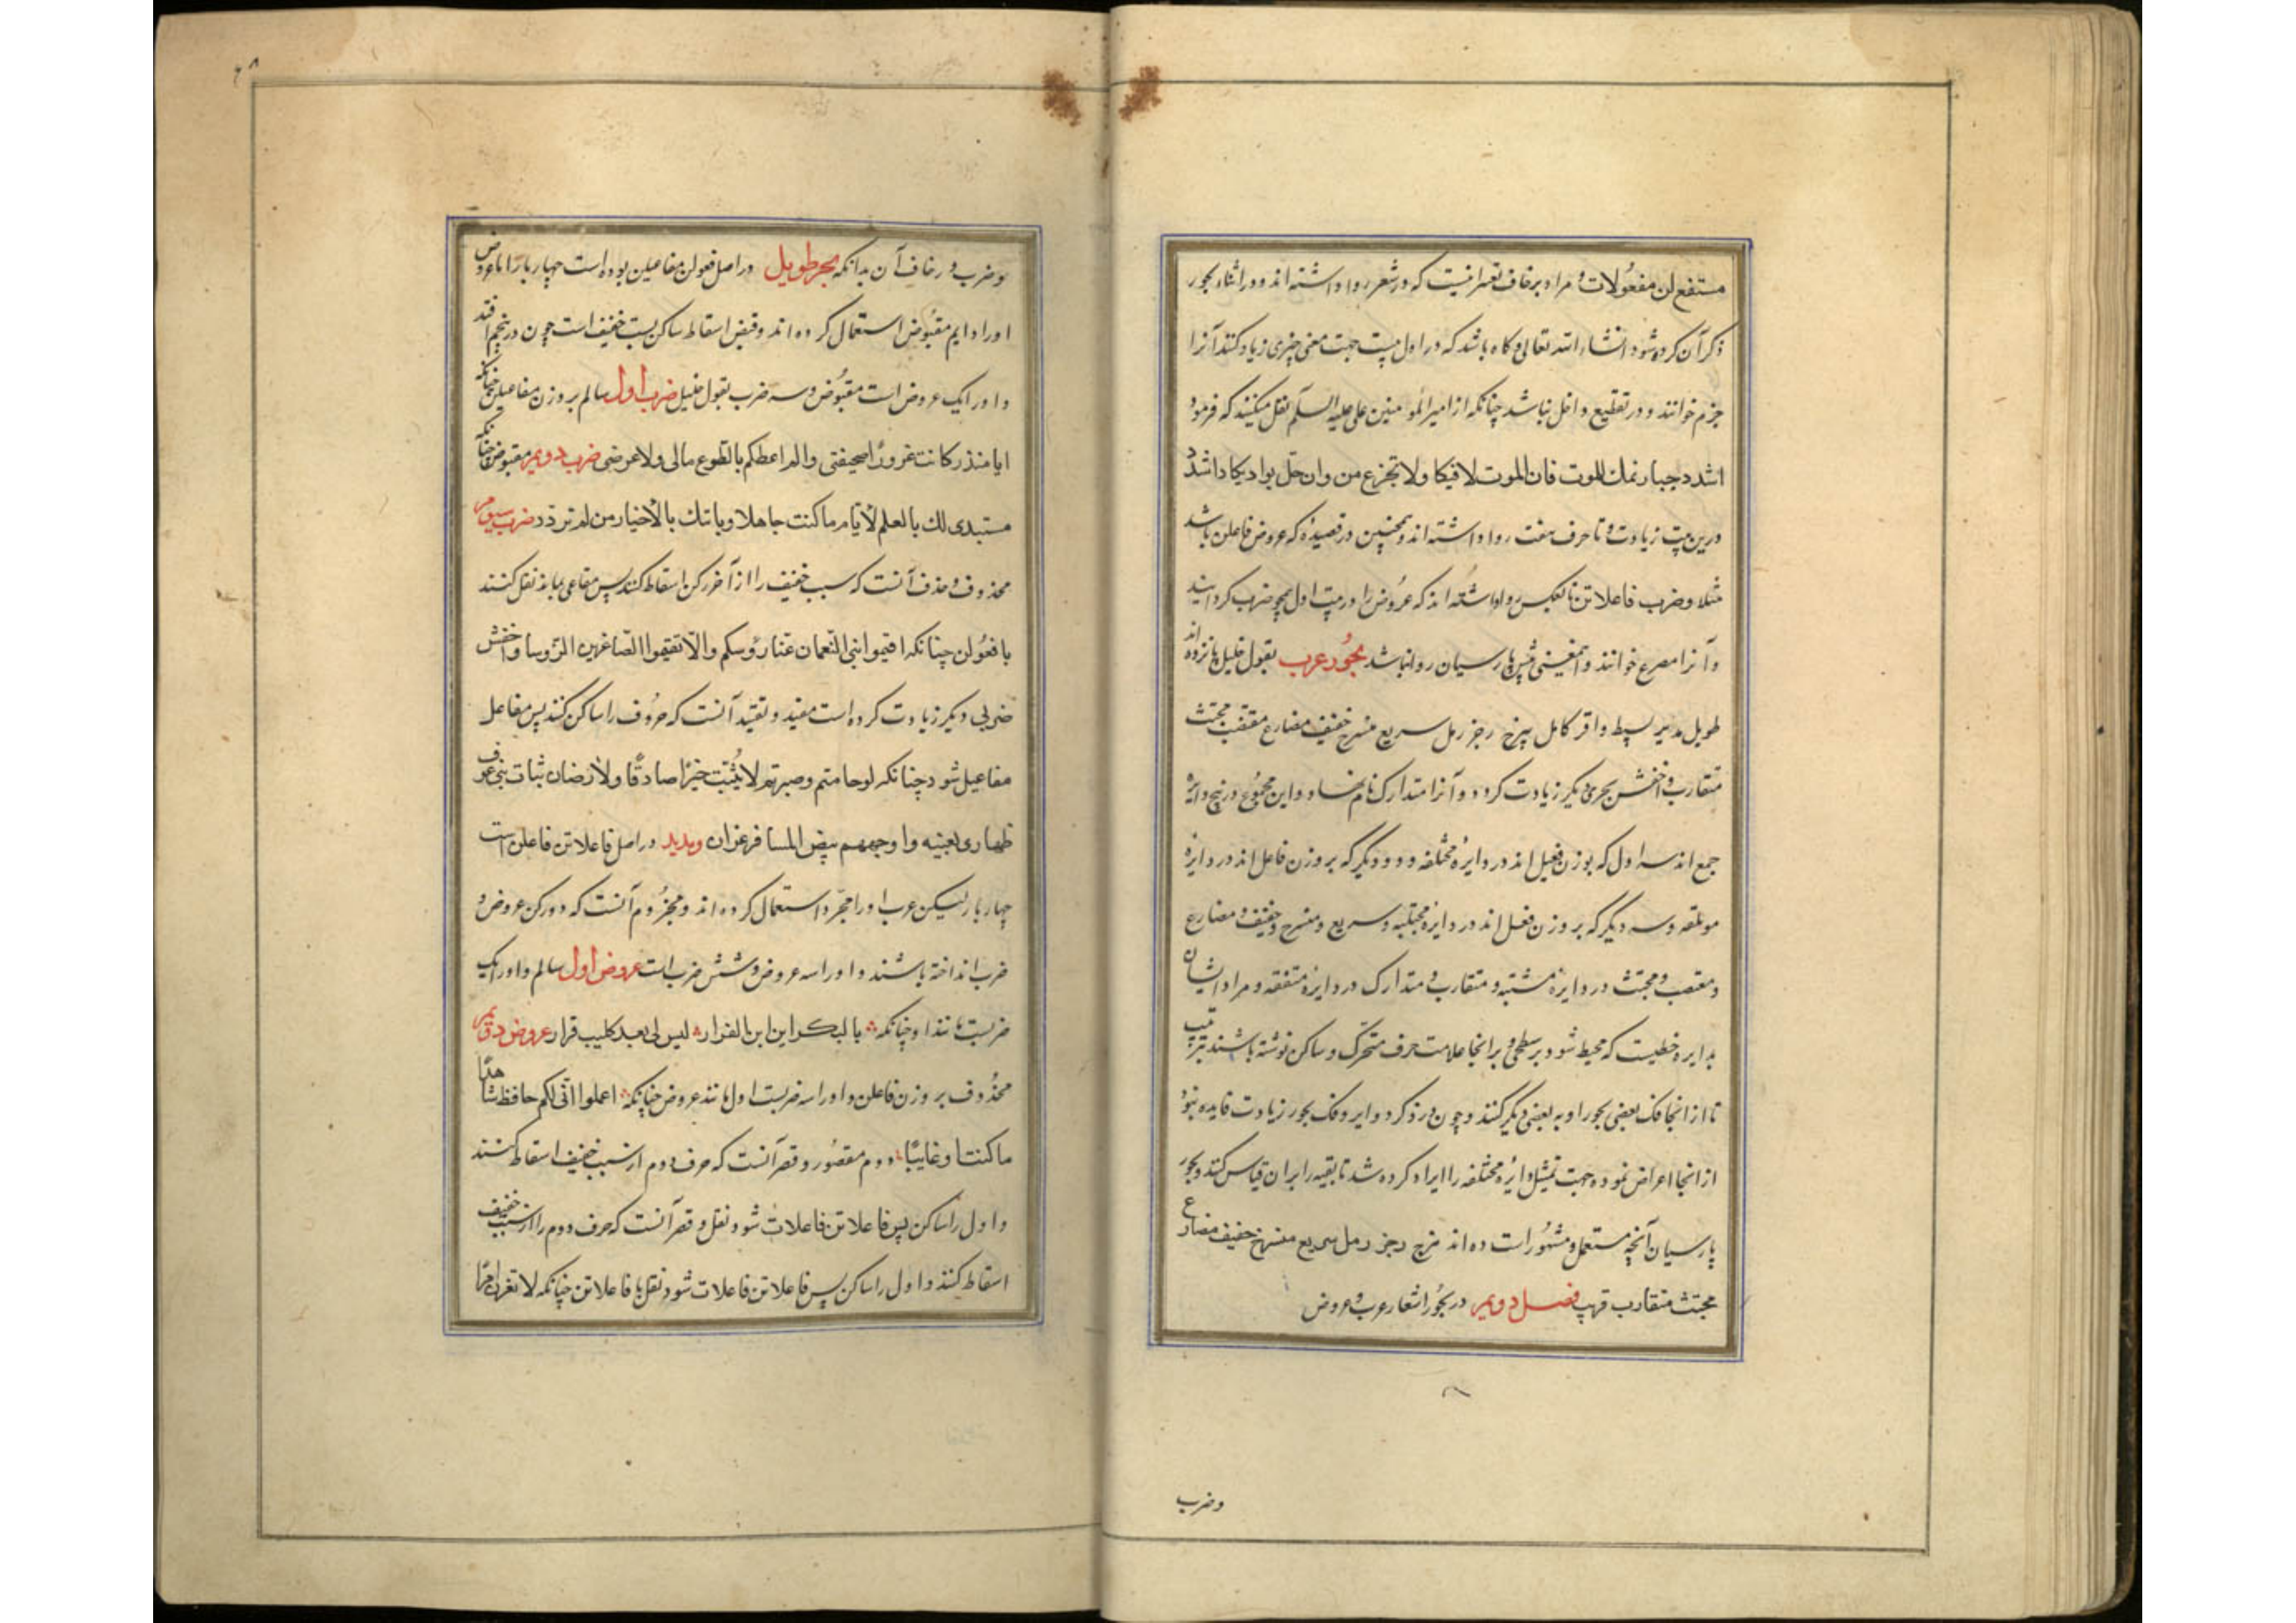 مستفع لن مفعولات و مراد بزحاف تغییرانیست که در شعر روا داشته اند و در اثناء بحور
ذکر آن کرده شود انشاء الله تعالی و کاه باشد که در اول بیت جهت معنی چیزی زیاد کنند آنرا
خزم خوانند و در تقطیع داخل نباشد چنانکه از امیر المومنین علی علیه السلم نقل میکنند که فرمود
اشدد حیازیمك للموت فان الموت لاقیکا ولا تجزع من وان حل بوادیکا و اشدد
درین بیت زیادت و تا حرف هفت روا داشته اند و همچنین در قصیده که عروض فاعلن باشد
مثلا وضرب فاعلاتن یا بعکس روا داشته اند که عروض را در بیت اول همچو ضرب کردانند
و آنرا مصرع خوانند و این معنی پیش پارسیان روا نباشد بحور عرب بقول خلیل پانزده اند
طویل مدید بسیط وافر کامل هزج رجز رمل سریع منسرح خفیف مضارع مقتضب مجتث
متقارب و اخفش بحری دیکر زیادت کرد و آنرا متدارک نام نهاد و این مجموع در پنج دایره
جمع اند سه اول که بوزن فعیل اند در دایره مختلفه و دو دیکر که بر وزن فاعل اند در دایره
موتلفه و سه دیکر که بر وزن فعل اند در دایره مجتلبه و سریع و منسرح و خفیف و مضارع
و مقتضب و مجتث در دایره مشتبه و متقارب و متدارک در دایره متفقه و مراد ایشان
بدایره خطیست که محیط شود بر سطحی و بر انجا علامت حرف متحرک و ساکن نوشته باشند بترتیب
تا از انجا فک بعضی بحور او به بعضی دیکر کنند و چون در ذکر دوایر و فک بحور زیادت فایده نبود
از انجا اعراض نموده جهت تمثیل دایره مختلفه را ایراد کرده شد تا بقیه را بر ان قیاس کنند و بحور
پارسیان آنچه مستعمل و مشهور است ده اند هزج رجز رمل سریع منسرح خفیف مضارع
مجتث متقارب قریب فصل دویم در بحور اشعار عرب و عروض
وضرب
وضرب و زحاف آن بدانکه بحر طویل در اصل فعولن مفاعیلن بوده است چهار بار اما عروض
اورا دایم مقبوض استعمال کرده اند و قبض اسقاط ساکن سبب خفیف است چون در پنجم افتد
و اورا یک عروض است مقبوض و سه ضرب بقول خلیل ضرب اول سالم بر وزن مفاعیلن چنانکه
ایا منذر کانت غرورًا صحیفتی ولم اعطکم بالطوع مالی ولا عرضی ضرب دویم مقبوض چنانکه
ستبدی لك بالعلم الایام ما کنت جاهلا ویاتیك بالاخیار من لم تزدد ضرب سیوم
محذوف و حذف آنست که سبب خفیف را از آخر رکن اسقاط کنند پس مفاعی بماند نقل کنند
با فعولن چنانکه اقیموا بنی النعمان عنا رؤسکم والا تقیموا الصاغرین الرؤسا و اخفش
ضربی دیکر زیادت کرده است مقید و تقیید آنست که حروف را ساکن کنند پس مفاعل
مفاعیل شود چنانکه
و مدید در اصل فاعلاتن فاعلن است
چهار بار لیکن عرب اورا مجزو استعمال کرده اند و مجزوم آنست که دو رکن عروض و
ضرب انداخته باشند و اورا سه عروض و شش ضرب است عروض اول سالم و اورا یک
ضربست مانند او چنانکه یا لبکر این این الفرار لیس لی بعد کلیب قرار عروض دویم
محذوف بر وزن فاعلن و اورا سه ضربست اول مانند عروض چنانکه اعلموا انی لکم حافظ شاهدًا
ما کنت او غایبًا دوم مقصور و قصر آنست که حرف دوم از سبب خفیف اسقاط کنند
و اول را ساکن پس فاعلاتن فاعلات شود نقل و قصر آنست که حرف دوم را از سبب خفیف
اسقاط کنند و اول را ساکن پس فاعلاتن فاعلات شود نقل با فاعلاتن چنانکه لا تغرن امرًا